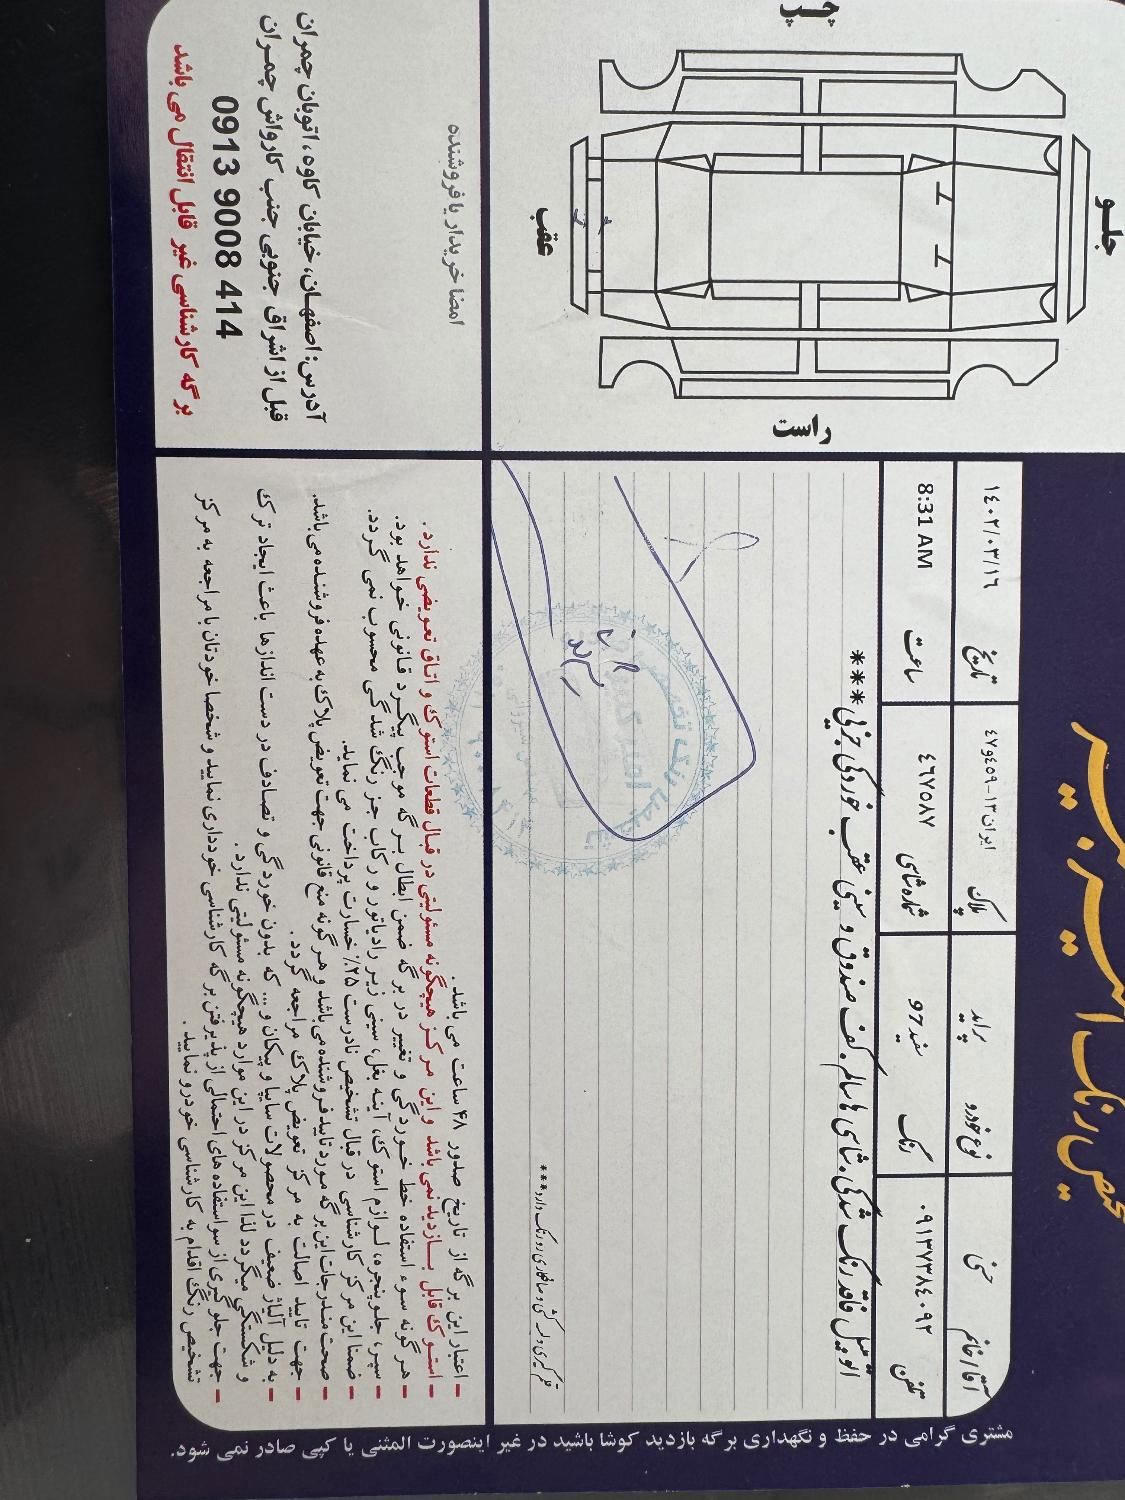 آقا/خانم
حسنی
نوع خودرو
پراید
پلاک
ایران ۱۳-۴۵۹و۴۷
تاریخ
۱۴۰۲/۰۳/۱۶
تلفن
۰۹۱۳۷۳۸۴۰۹۲
رنگ
سفید 97
شماره شاسی
۴۶۷۵۸۷
ساعت
8:31 AM
اتومبیل فاقد رنگ شدگی. شاسی ها سالم. کف صندوق و سینی عقب خوردگی جزئی***
قلم گیری و لیسه کشی و صافکاری رو رنگ دارد***
چپ
جلو
عقب
راست
امضا خریدار یا فروشنده
آدرس: اصفهان، خیابان کاوه، اتوبان چمران
قبل از اشراق جنوبی جنب کارواش چمران
0913 9008 414
برگه کارشناسی غیر قابل انتقال می باشد
– اعتبار این برگه از تاریخ صدور ۴۸ ساعت می باشد.
– استوک قابل بازدید نمی باشد و این مرکز هیچگونه مسئولیتی در قبال قطعات استوک و اتاق تعویضی ندارد.
– هر گونه سوء استفاده خط خوردگی و تغییر در برگه ضمن ابطال برگه موجب پیگرد قانونی خواهد بود.
– سپر، جلو پنجره، لوازم استوک، آینه بغل، سینی زیر رادیاتور و رکاب جز رنگ شدگی محسوب نمی گردد.
– ضمنا این مرکز کارشناسی در قبال تشخیص نادرست ۲۵٪ خسارت پرداخت می نماید.
– صحت مندرجات این برگه مورد تایید فروشنده می باشد و هر گونه منع قانونی جهت تعویض پلاک به عهده فروشنده می باشد.
– جهت تایید اصالت به مرکز تعویض پلاک مراجعه گردد.
– به دلیل آلیاژ ضعیف در محصولات سایپا و پیکان و ... که بدون خوردگی و تصادف در دست اندازها باعث ایجاد ترک
و شکستگی میگردد لذا این مرکز در این موارد هیچگونه مسئولیتی ندارد.
– جهت جلوگیری از سو استفاده های احتمالی از پذیرفتن برگه کارشناسی خودداری نمایید و شخصا خودتان با مراجعه به مرکز
تشخیص رنگ اقدام به کارشناسی خودرو نمایید.
مشتری گرامی در حفظ و نگهداری برگه بازدید کوشا باشید در غیر اینصورت المثنی یا کپی صادر نمی شود.